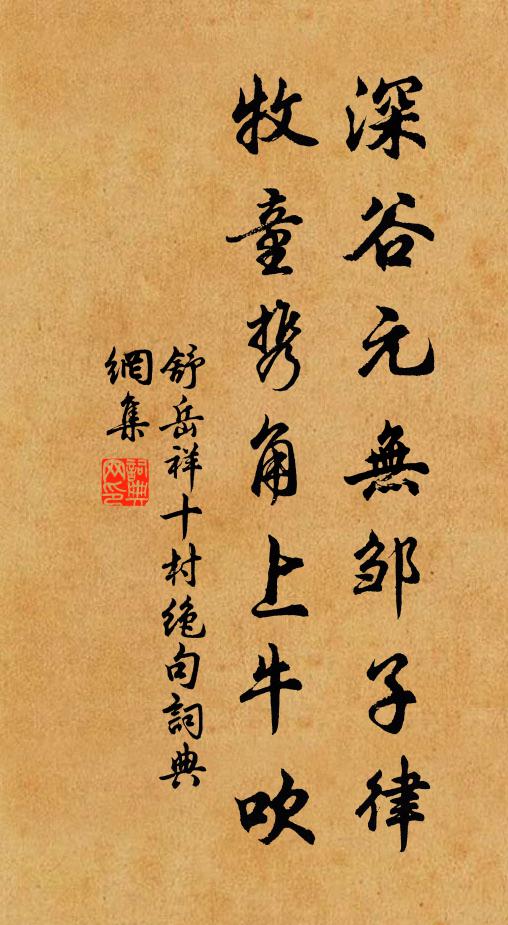 深谷元無邹子律
牧童携角上牛吹
舒岳祥十村绝句詞典
網集
詞典
网印